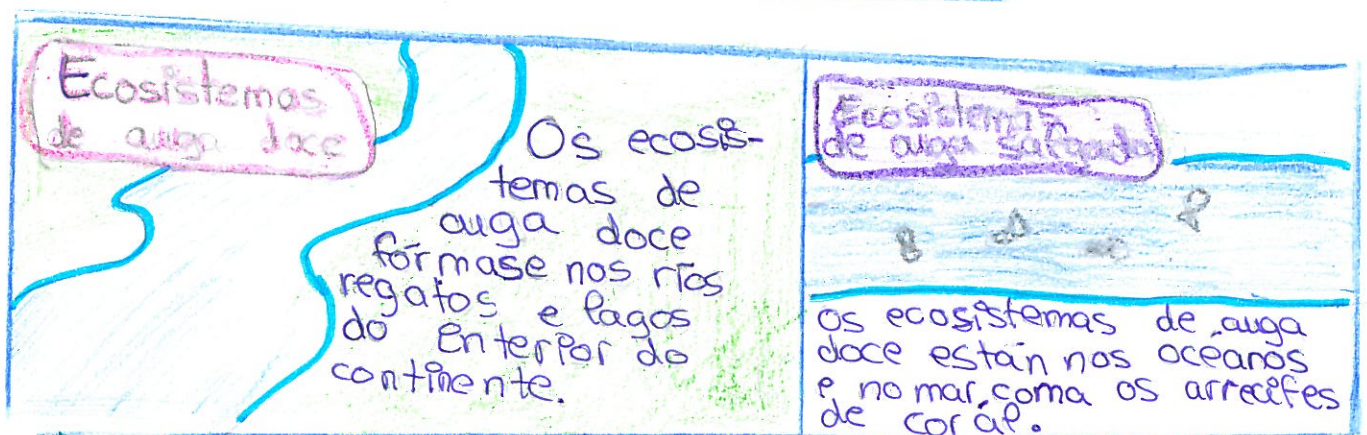 Ecosistemas
de auga doce
Os ecosis-
temas de
auga doce
fórmase nos ríos
regatos e lagos
do enterior do
continente.
Ecosistemas
de auga salgada
os ecosistemas de auga
doce están nos océanos
e no mar, coma os arrecifes
de corál.